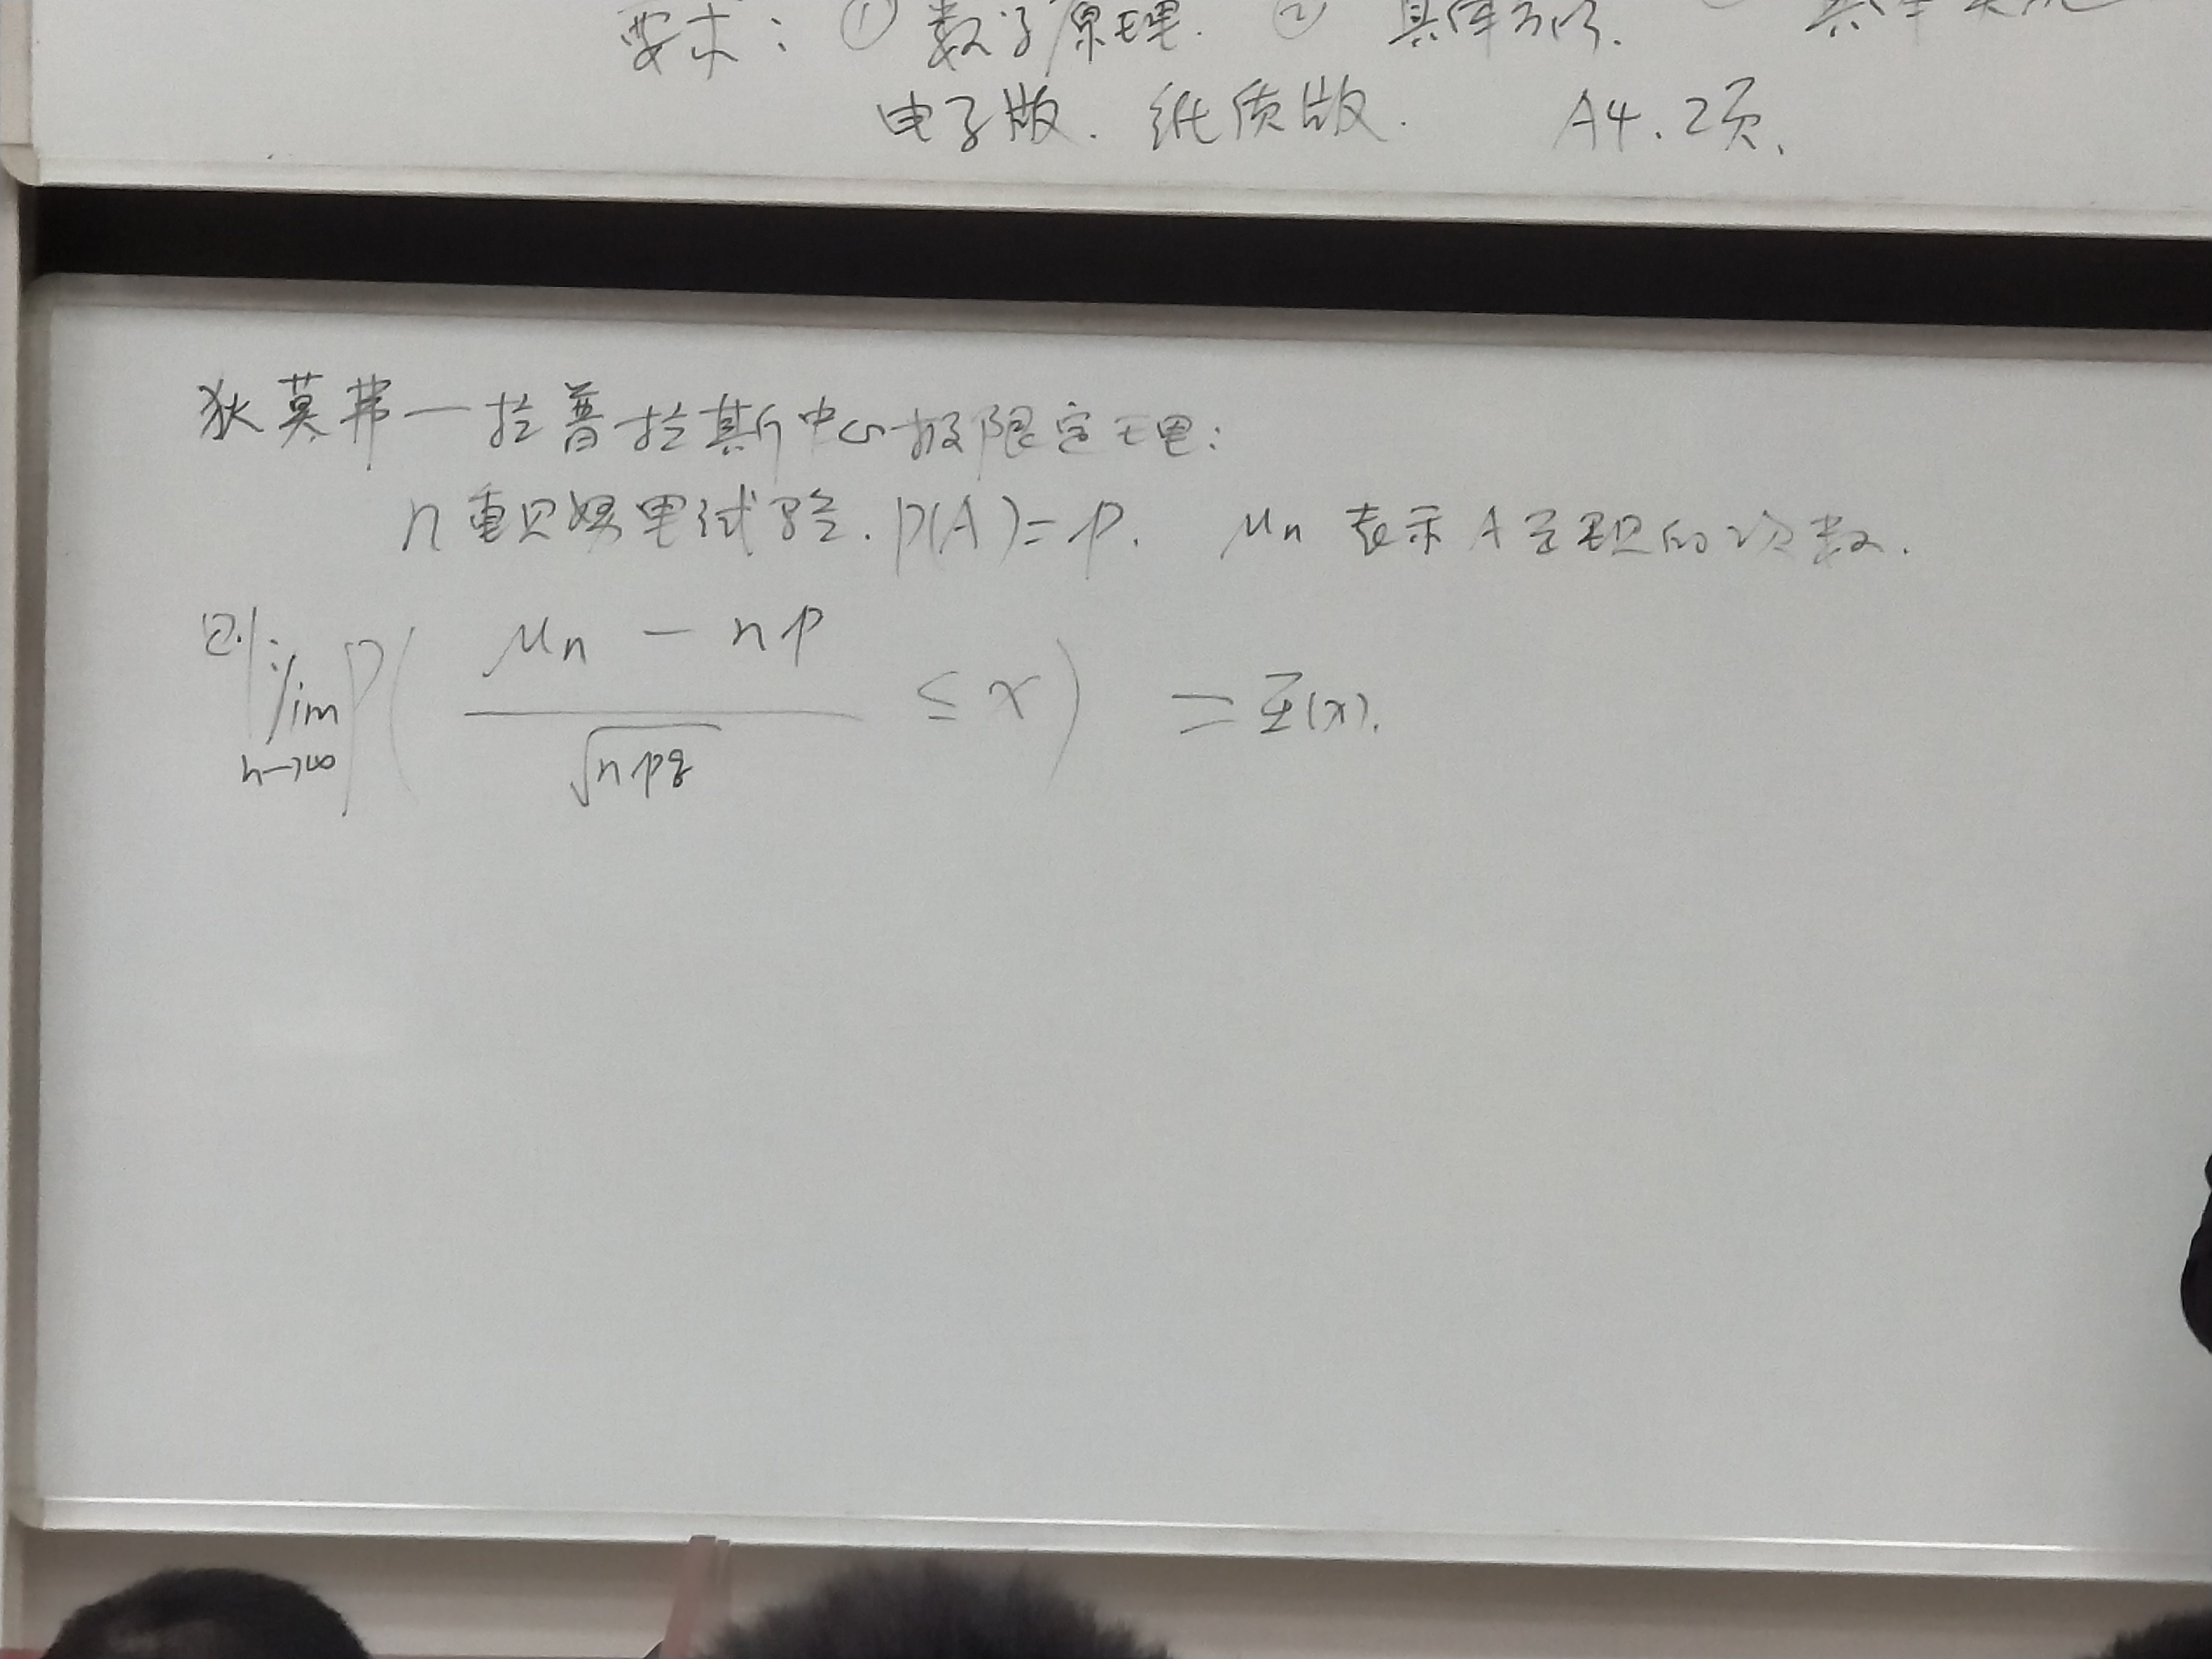 要求: ① 数学原理. ② 具体方法.
电子版. 纸质版. A4. 2页.
狄莫弗—拉普拉斯中心极限定理:
n重贝努里试验. P(A)=p. μn 表示A呈现的次数.
则: lim n→∞ P( (μn − np) / √npq ≤ x ) = Φ(x).